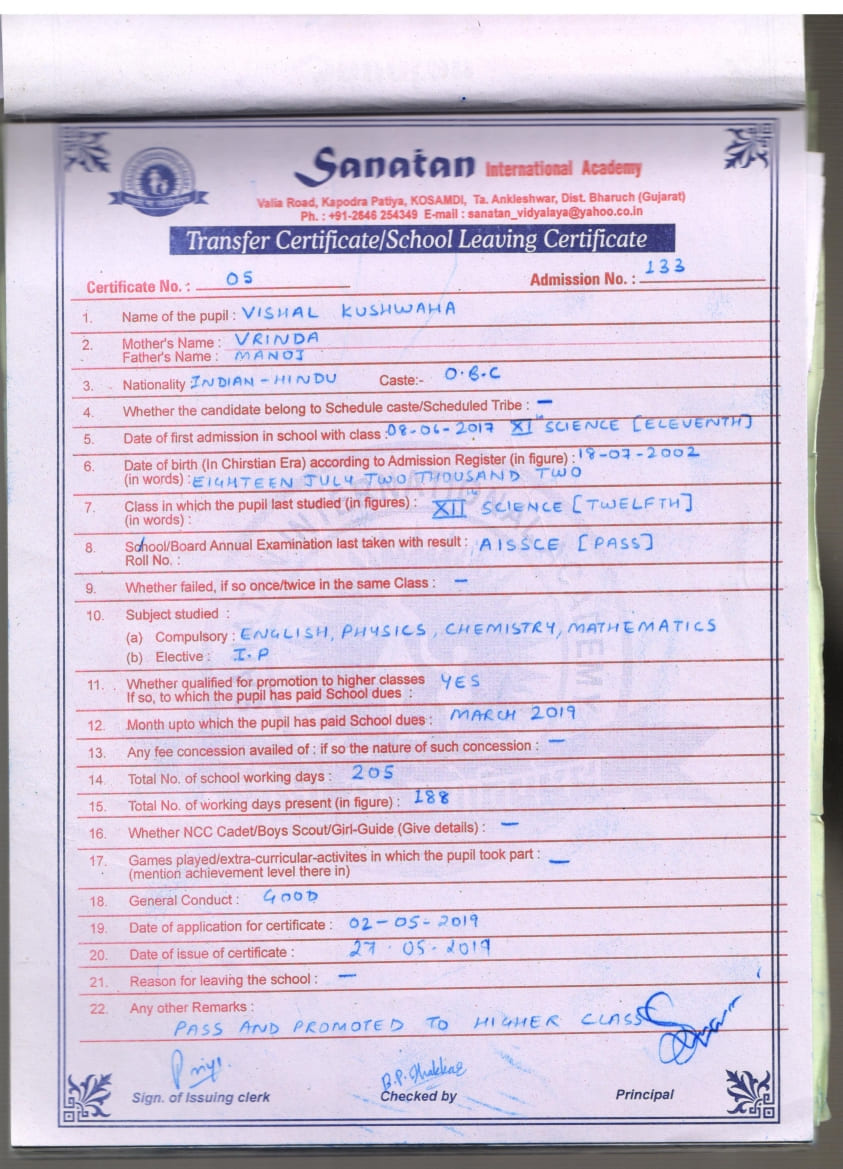 Sanatan International Academy
Valia Road, Kapodra Patiya, KOSAMDI, Ta. Ankleshwar, Dist. Bharuch (Gujarat)
Ph. : +91-2646 254349 E-mail : sanatan_vidyalaya@yahoo.co.in
Transfer Certificate/School Leaving Certificate
Certificate No. : 05 Admission No. : 133
1. Name of the pupil : VISHAL KUSHWAHA
2. Mother's Name : VRINDA
Father's Name : MANOJ
3. Nationality INDIAN - HINDU Caste:- O.B.C
4. Whether the candidate belong to Schedule caste/Scheduled Tribe : —
5. Date of first admission in school with class : 08-06-2017 XIth SCIENCE [ELEVENTH]
6. Date of birth (In Chirstian Era) according to Admission Register (in figure) : 18-07-2002
(in words) : EIGHTEEN JULY TWO THOUSAND TWO
7. Class in which the pupil last studied (in figures) : XIIth SCIENCE [TWELFTH]
(in words) :
8. School/Board Annual Examination last taken with result : AISSCE [PASS]
Roll No. :
9. Whether failed, if so once/twice in the same Class : —
10. Subject studied :
(a) Compulsory : ENGLISH, PHYSICS, CHEMISTRY, MATHEMATICS
(b) Elective : I.P
11. Whether qualified for promotion to higher classes YES
If so, to which the pupil has paid School dues :
12. Month upto which the pupil has paid School dues : MARCH 2019
13. Any fee concession availed of : if so the nature of such concession : —
14. Total No. of school working days : 205
15. Total No. of working days present (in figure) : 188
16. Whether NCC Cadet/Boys Scout/Girl-Guide (Give details) : —
17. Games played/extra-curricular-activites in which the pupil took part : —
(mention achievement level there in)
18. General Conduct : GOOD
19. Date of application for certificate : 02-05-2019
20. Date of issue of certificate : 27-05-2019
21. Reason for leaving the school : —
22. Any other Remarks :
PASS AND PROMOTED TO HIGHER CLASS
B.P. Thakkar
Sign. of Issuing clerk Checked by Principal